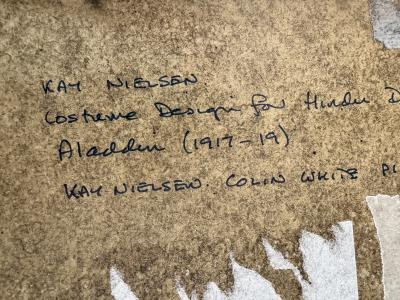 KAY NIELSEN
Costume Design for Hindu D
Aladdin (1917-19)
KAY NIELSEN. COLIN WHITE PL